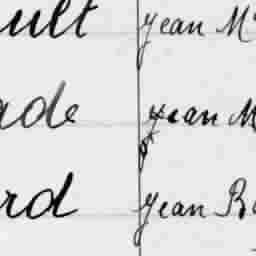 ult Jean M
ade Jean M
rd Jean B